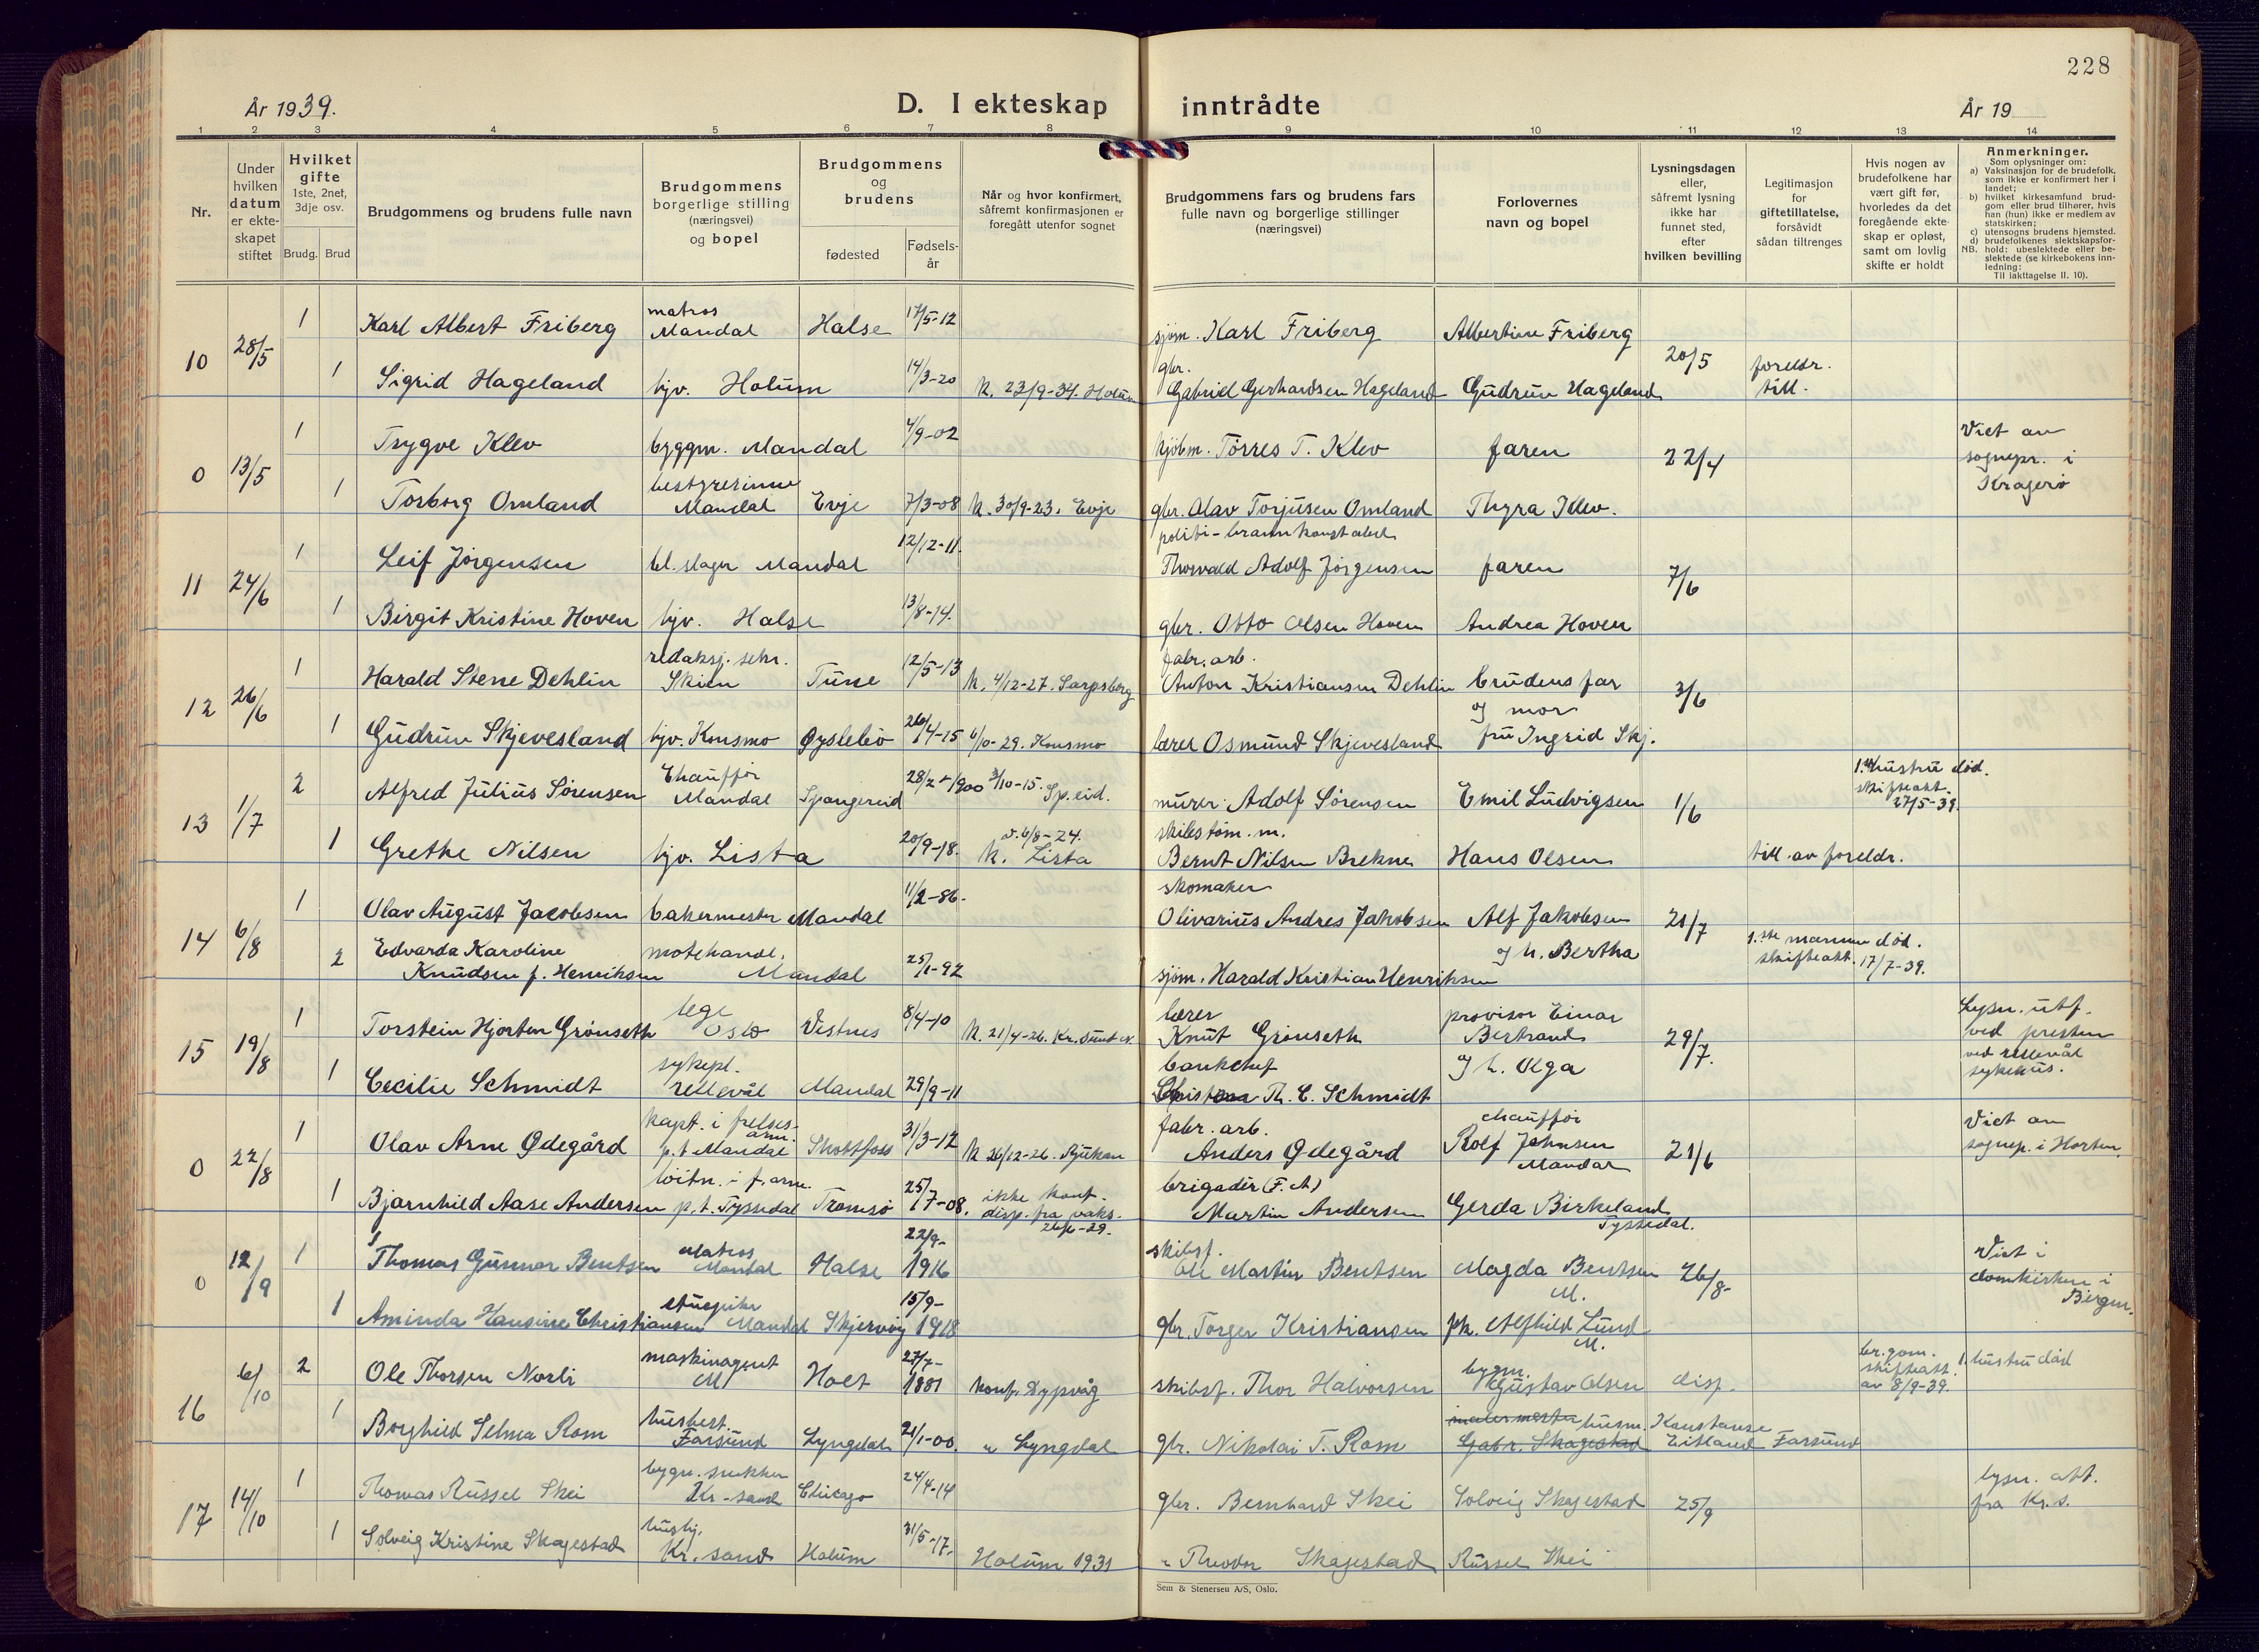 228
År 1939.
D. I ekteskap inntrådte
År 19
1 2 3 4 5 6 7 8 9 10 11 12 13 14
Nr.
Under hvilken datum er ekteskapet stiftet
Hvilket gifte 1ste, 2net, 3dje osv.
Brudg. Brud
Brudgommens og brudens fulle navn
Brudgommens borgerlige stilling (næringsvei) og bopel
Brudgommens og brudens
fødested
Fødsels-år
Når og hvor konfirmert, såfremt konfirmasjonen er foregått utenfor sognet
Brudgommens fars og brudens fars fulle navn og borgerlige stillinger (næringsvei)
Forlovernes navn og bopel
Lysningsdagen eller, såfremt lysning ikke har funnet sted, efter hvilken bevilling
Legitimasjon for giftetillatelse, forsåvidt sådan tiltrenges
Hvis nogen av brudefolkene har vært gift før, hvorledes da det foregående ekteskap er opløst, samt om lovlig skifte er holdt
Anmerkninger.
Som oplysninger om:
a) Vaksinasjon for de brudefolk, som ikke er konfirmert her i landet;
b) hvilket kirkesamfund brudgom eller brud tilhører, hvis han (hun) ikke er medlem av statskirken;
c) utensogns brudens hjemsted.
d) brudefolkenes slektskapsforhold: ubeslektede eller beslektede (se kirkebokens innledning:
NB. Til iakttagelse II. 10).
10 28/5 1 Karl Albert Friberg matros Mandal Halse 17/5-12 sjøm. Karl Friberg Albertine Friberg 20/5
1 Sigrid Hageland hjv. Holum 14/3-20 k. 23/9-34. Holum gbr. Gabriel Gerhardsen Hageland Gudrun Hageland foreldr. till.
0 13/5 1 Trygve Klev byggm. Mandal 4/9-02 kjøbm. Tørres T. Klev faren 22/4 Viet av sognepr. i Kragerø
1 Torborg Omland bestyrerinne Mandal Evje 7/3-08 k. 30/9-23. Evje gbr. Olav Torjusen Omland Thyra Klev.
11 24/6 1 Leif Jørgensen bl. slager Mandal 12/12-11. politi-brannkonstabel Thorvald Adolf Jørgensen faren 7/6
1 Birgit Kristine Hoven hjv. Halse 13/8-14. gbr. Otto Olsen Hoven Andrea Hoven
12 26/6 1 Harald Stene Dehlin redaksj. sekr. Skien Tune 12/5-13 k. 4/12-27. Sarpsborg fabr. arb. Anton Kristiansen Dehlin brudens far og mor 3/6
1 Gudrun Skjevesland hjv. Konsmo Øyslebø 26/4-15 6/10-29. Konsmo lærer Osmund Skjevesland fru Ingrid Skj.
13 1/7 2 Alfred Julius Sørensen Chauffør Mandal Spangereid 28/2-1900 3/10-15. Sp.eid. murer Adolf Sørensen Emil Ludvigsen 1/6 1. hustru død. skifteatt. 27/5-39.
1 Grethe Nilsen hjv. Lista 20/9-18. k. Lista skibstøm.m. Bernt Nilsen Brekne Hans Olsen till. av foreldr.
14 6/8 1 Olav August Jacobsen bakermester Mandal 11/2-86. skomaker Olivarius Andres Jakobsen Alf Jakobsen 21/7
2 Edvarda Karoline Knudsen f. Henriksen motehandl. Mandal 25/1-92 sjøm. Harald Kristian Henriksen og h. Bertha 1.ste mannen død. skifteatt. 17/7-39.
15 19/8 1 Torstein Hjorten Grønseth lege Oslo Vestnes 8/4-10 k. 21/4-26. Kr.sund N. lærer Knut Grønseth provisor Einar Bertrand 29/7. Lysn. utf. ved presten ved Ullevål sykehus.
1 Cecilie Schmidt sykepl. Ullevål Mandal 29/9-11 banksjef Th. C. Schmidt og h. Olga
0 22/8 1 Olav Arne Ødegård kapt. i frelses-arm. p.t. Mandal Skotfoss 31/3-12 k 26/12-26. Rjukan fabr. arb. Anders Ødegård chauffør Rolf Johnsen Mandal 21/6 Viet av sognep. i Horten.
1 Bjarnhild Aase Andersen løitn. i f. arm. p.t. Tyssedal Tromsø 25/7-08. ikke konf. disp. fra vaks. brigadér (F.A) Martin Andersen Gerda Birkeland Tyssedal.
0 12/9 1 Thomas Gunnar Bentsen Matros Mandal Halse 22/9-1916 skibsf. Ole Martin Bentsen Magda Bentsen M. 26/8- Viet i domkirken i Bergen.
1 Aminda Hansine Christiansen Mandal Skjervøy 15/9-1918 gbr. Torger Kristiansen Alfhild Lund M.
16 6/10 2 Ole Thorsen Norli maskinagent M Holt 27/7-1881 konf. Dypvåg skibsf. Thor Halvorsen bygm. Gustav Olsen disp. br.gom. skifteatt. av 8/9-39. 1. hustru død
1 Borghild Selma Rom husbest. Farsund Lyngdal 21/1-00. " Lyngdal gbr. Nikolai T. Rom malermester Gabr. Skagestad husm. Konstanse Eitland Farsund
17 14/10 1 Thomas Russel Skei bygn. snekker Kr-sand Chicago 24/4-14 gbr. Bernhard Skei Solveig Skagestad 25/9 lysn. att. fra Kr.s.
1 Solveig Kristine Skagestad hushj. Kr.sand Holum 31/5-17. Holum 1931 " Theodor Skagestad Russel Skei
Sem & Stenersen A/S, Oslo.